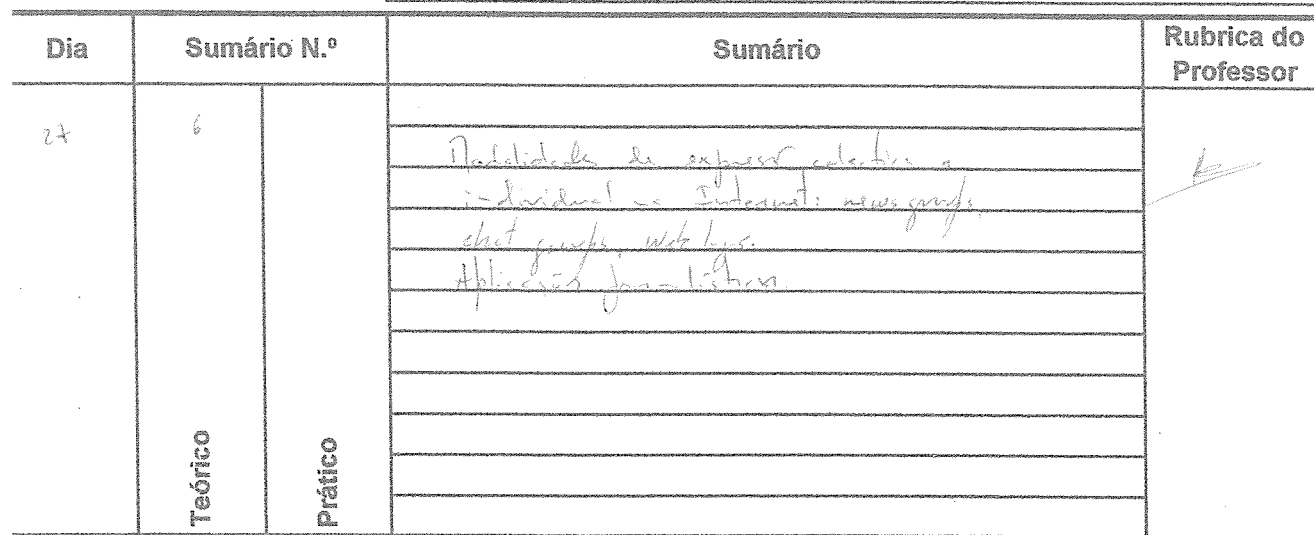 Dia
Sumário N.º
Sumário
Rubrica do
Professor
27
6
Modalidades de expressão colectiva e
individual na Internet: newsgroups,
chat groups, weblogs.
Aplicações jornalísticas.
Teórico
Prático